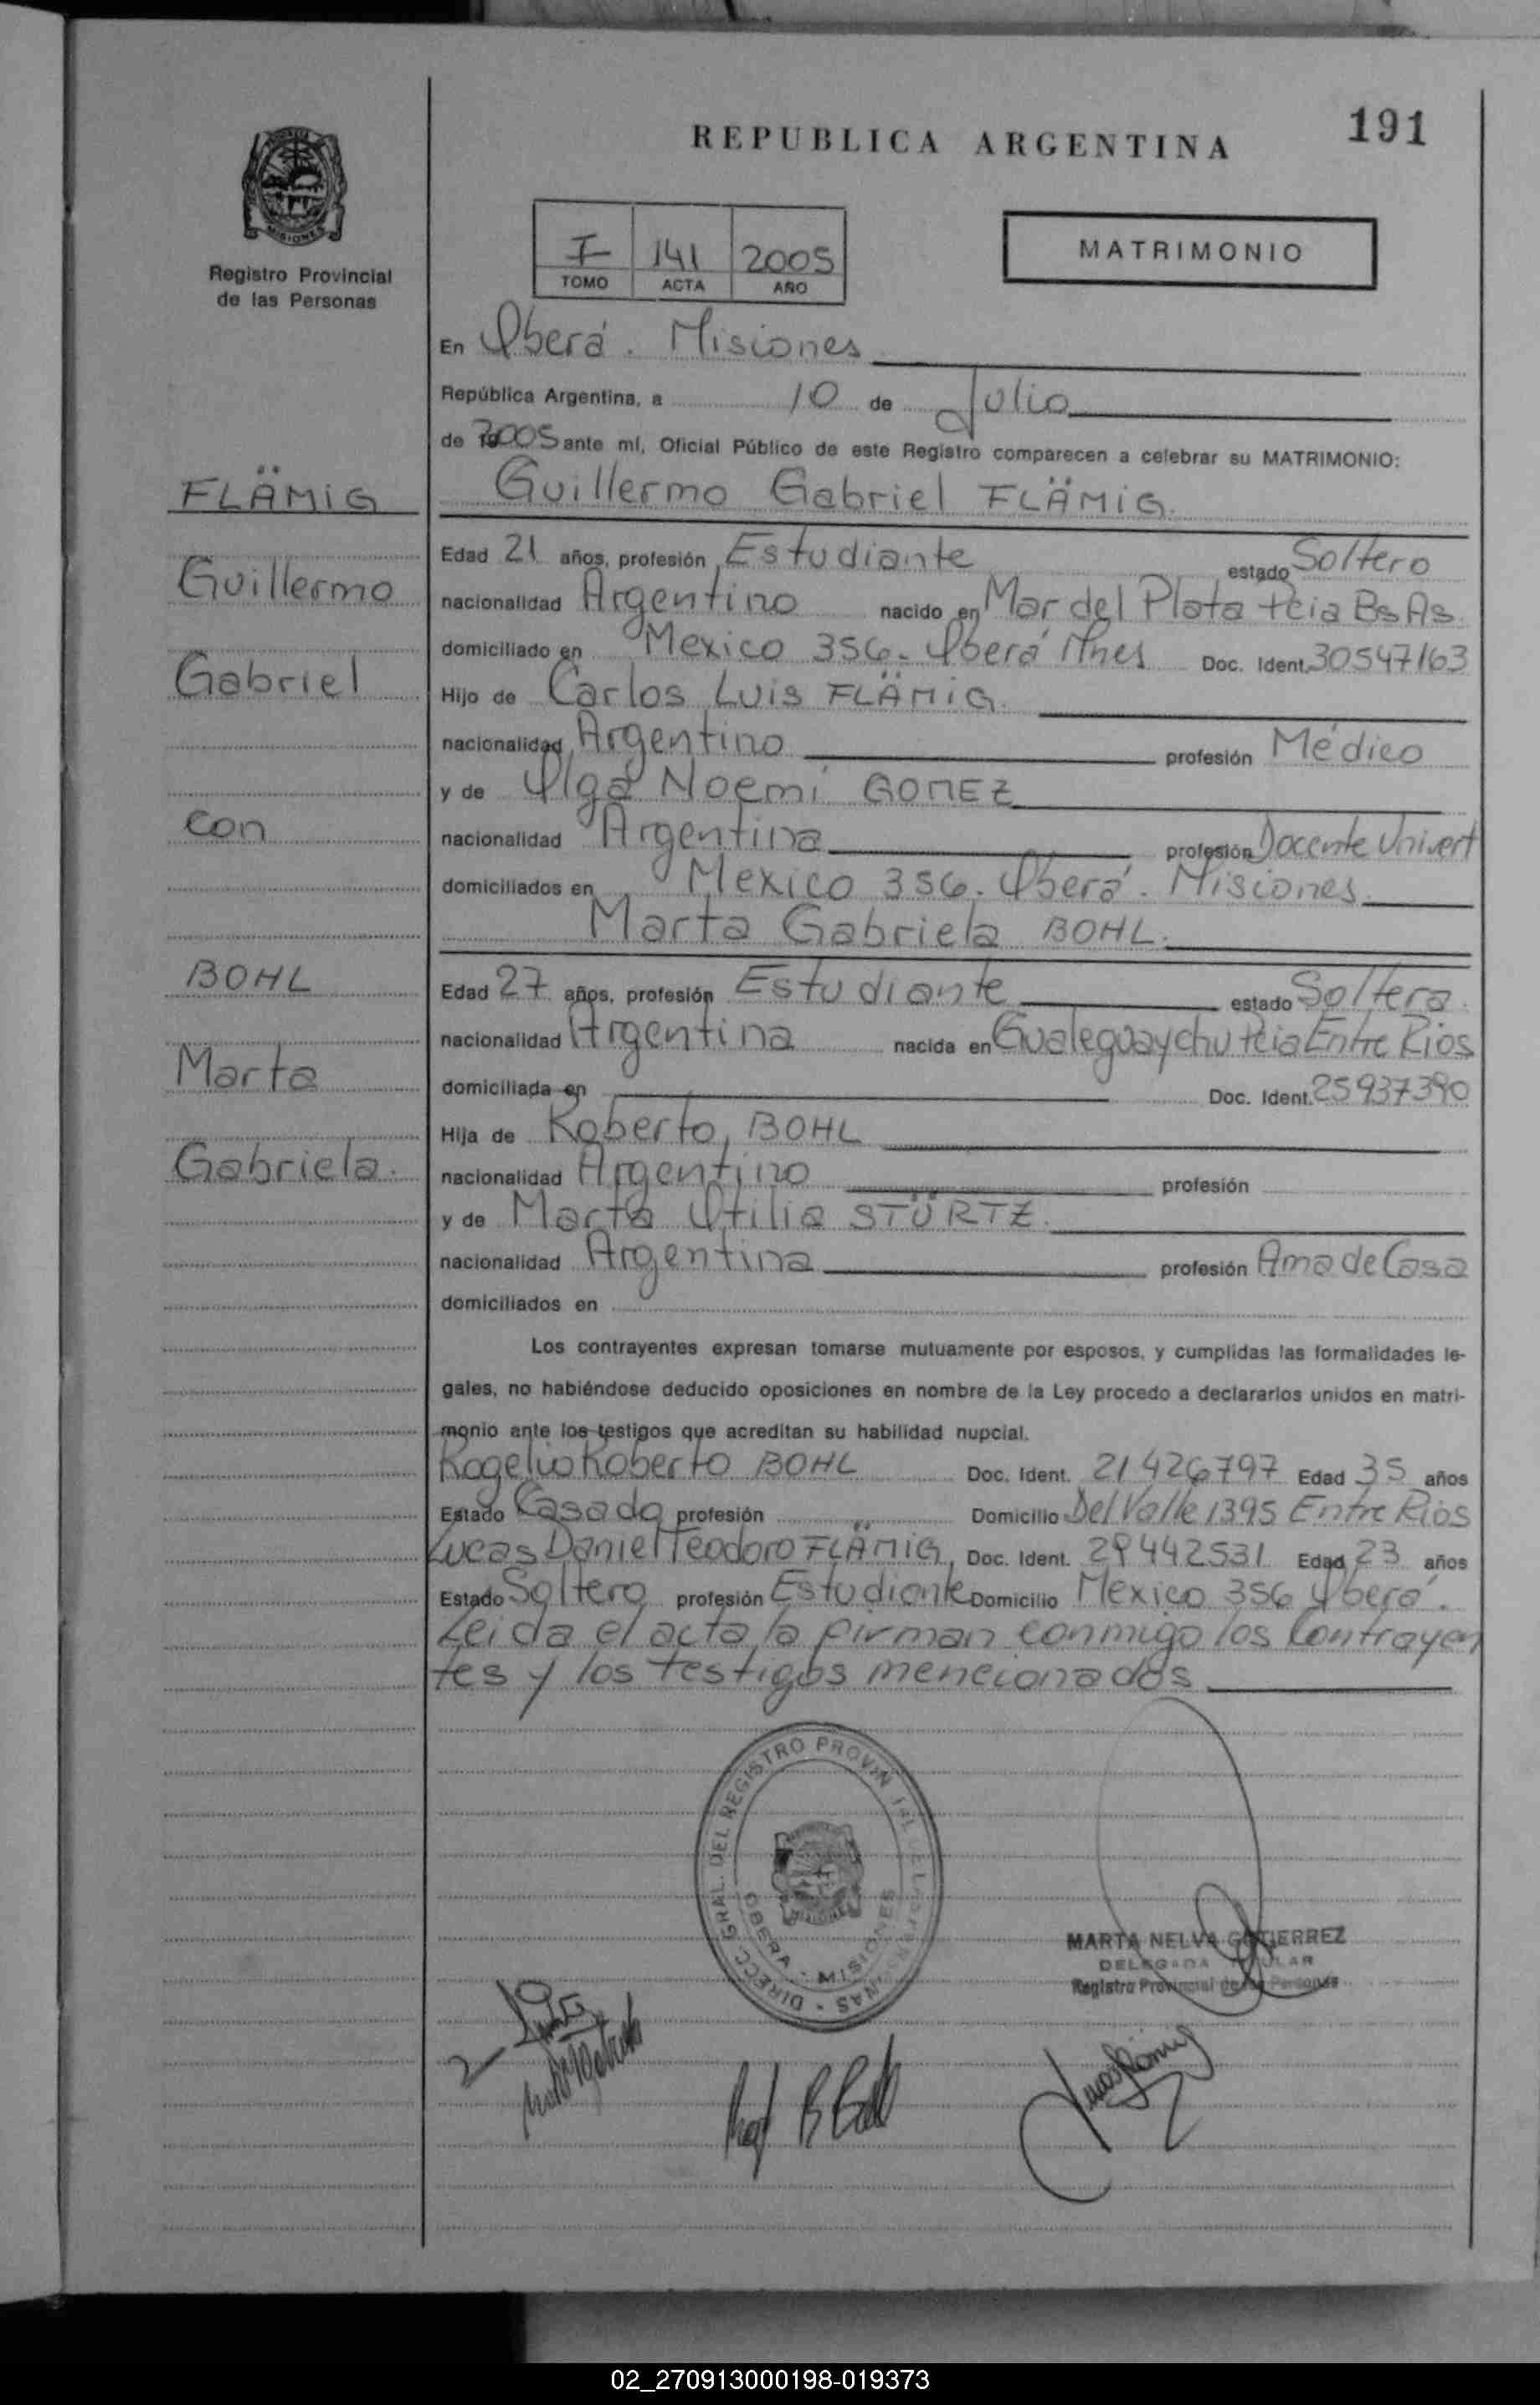 191
REPUBLICA ARGENTINA
MISIONES
Registro Provincial
de las Personas
I 141 2005
TOMO ACTA AÑO
MATRIMONIO
En Oberá. Misiones
República Argentina, a 10 de Julio
de 2005 ante mí, Oficial Público de este Registro comparecen a celebrar su MATRIMONIO:
FLÄMIG
Guillermo Gabriel FLÄMIG.
Edad 21 años, profesión Estudiante estado Soltero
Guillermo
nacionalidad Argentino nacido en Mar del Plata Pcia Bs As.
domiciliado en Mexico 356. Oberá Mnes Doc. Ident. 30547163
Gabriel
Hijo de Carlos Luis FLÄMIG.
nacionalidad Argentino profesión Médico
y de Olga Noemí GOMEZ
con
nacionalidad Argentina profesión Docente Univert
domiciliados en Mexico 356. Oberá. Misiones.
Marta Gabriela BOHL.
BOHL
Edad 27 años, profesión Estudiante estado Soltera.
nacionalidad Argentina nacida en Gualeguaychu Pcia Entre Rios
Marta
domiciliada en Doc. Ident. 25937390
Hija de Roberto, BOHL
Gabriela.
nacionalidad Argentino profesión
y de Marta Otilia STÜRTZ.
nacionalidad Argentina profesión Ama de Casa
domiciliados en
Los contrayentes expresan tomarse mutuamente por esposos, y cumplidas las formalidades le-
gales, no habiéndose deducido oposiciones en nombre de la Ley procedo a declararlos unidos en matri-
monio ante los testigos que acreditan su habilidad nupcial.
Rogelio Roberto BOHL Doc. Ident. 21426797 Edad 35 años
Estado Casado profesión Domicilio Del Valle 1395 Entre Rios
Lucas Daniel Teodoro FLÄMIG, Doc. Ident. 29442531 Edad 23 años
Estado Soltero profesión Estudiante Domicilio Mexico 356 Oberá.
Leida el acta la firman conmigo los Contrayen
tes y los testigos mencionados
DIRECC. GRAL. DEL REGISTRO PROVINCIAL DE LAS PERSONAS
OBERA - MISIONES
MARTA NELVA GUTIERREZ
DELEGADA TITULAR
Registro Provincial de las Personas
02_270913000198-019373